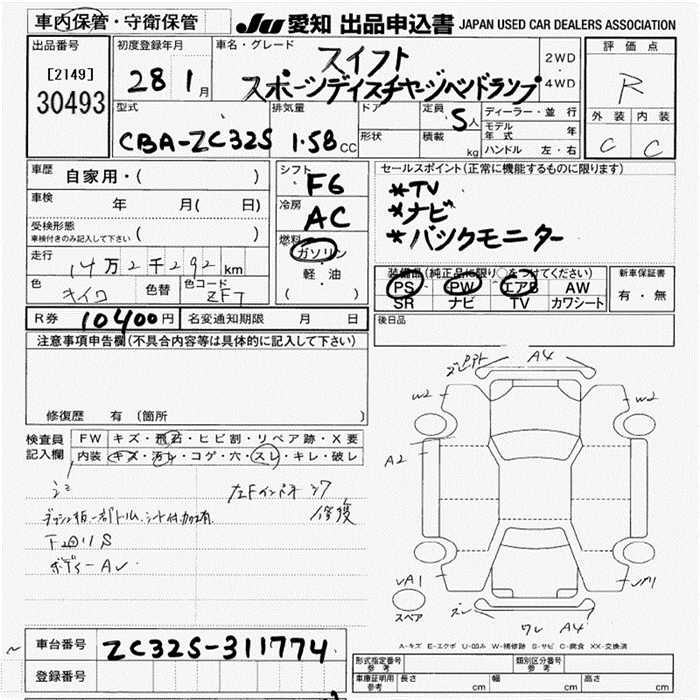 車内保管・守衛保管
JU 愛知 出品申込書 JAPAN USED CAR DEALERS ASSOCIATION
出品番号
[2149]
30493
初度登録年月
28 1月
車名・グレード
スイフト
スポーツディスチャージヘッドランプ
2WD
4WD
評価点
R
外装 内装
C C
型式
CBA-ZC32S
排気量
1.58cc
ドア
形状
定員
5人
積載
kg
ディーラー・並行
モデル年式 年
ハンドル 左・右
車歴 自家用・( )
車検 年 月( 日)
受検形態
車検付きのみ記入して下さい ( )
走行 14万2千292km
色 キイロ 色替 色コード ZF7
シフト
F6
冷房
AC
燃料
ガソリン
軽・油
( )
セールスポイント(正常に機能するものに限ります)
*TV
*ナビ
*バックモニター
装備品(純正品に限り○をつけてください)
PS PW エアB AW
SR ナビ TV カワシート
新車保証書
有・無
R券 10400円 名変通知期限 月 日
後日品
注意事項申告欄(不具合内容等は具体的に記入して下さい)
修復歴 有 (箇所 )
検査員記入欄
FW キズ・飛石・ヒビ割・リペア跡・X要
内装 キズ・汚レ・コゲ・穴・スレ・キレ・破レ
修復
ボディーAレ
A4
W2 W2
A2
A4
スペア
A-キズ E-エクボ U-凹み W-補修跡 S-サビ C-腐食 XX-交換済
車台番号 ZC32S-311774
登録番号
形式指定番号 参考
類別区分番号 参考
車庫証明用 参考 長さ cm 幅 cm 高さ cm